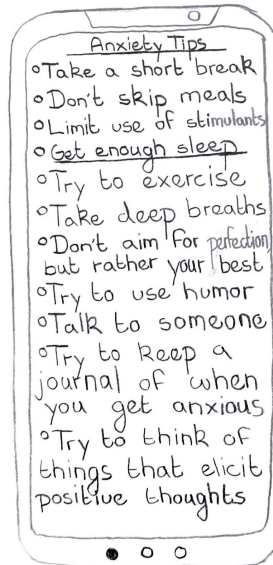 Anxiety Tips
°Take a short break
°Don't skip meals
°Limit use of stimulants
°Get enough sleep
°Try to exercise
°Take deep breaths
°Don't aim for perfection,
but rather your best
°Try to use humor
°Talk to someone
°Try to keep a
journal of when
you get anxious
°Try to think of
things that elicit
positive thoughts